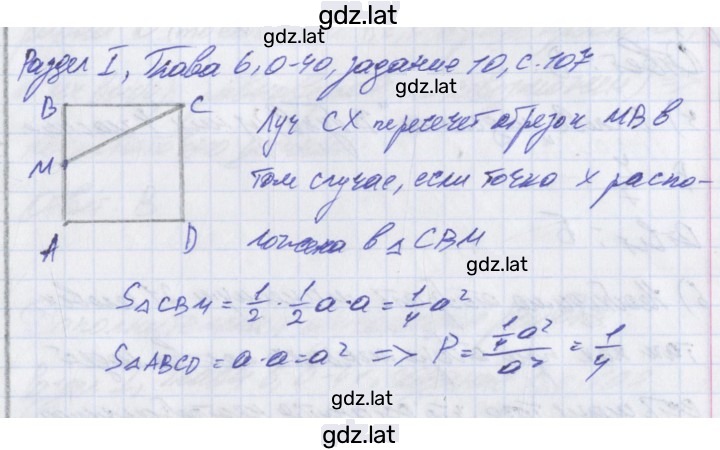 gdz.lat
Раздел I, Глава 6, О-40, задание 10, с. 107
gdz.lat
B C
M
A D
Луч CX пересечет отрезок MB в
том случае, если точка X распо-
ложена в △ CBM
gdz.lat
S△CBM = 1/2 · 1/2 a · a = 1/4 a²
S△ABCD = a · a = a² => P = (1/4 a²)/a² = 1/4
gdz.lat
gdz.lat